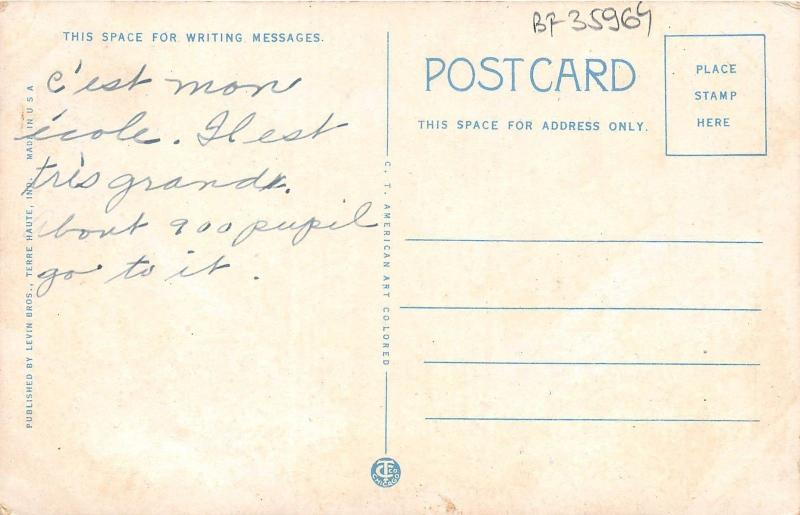 BF 35964
THIS SPACE FOR WRITING MESSAGES.
c'est mon
école. Il est
très grand.
bout 900 pupil
go to it.
PUBLISHED BY LEVIN BROS., TERRE HAUTE, IND. MADE IN U S A
C. T. AMERICAN ART COLORED
POST CARD
THIS SPACE FOR ADDRESS ONLY.
PLACE
STAMP
HERE
CT CO.
CHICAGO